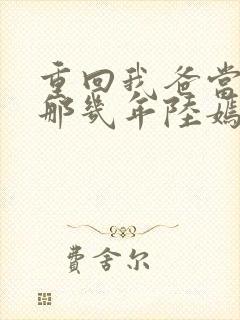 重回我爸当
那几年陸嫣
費舍尔